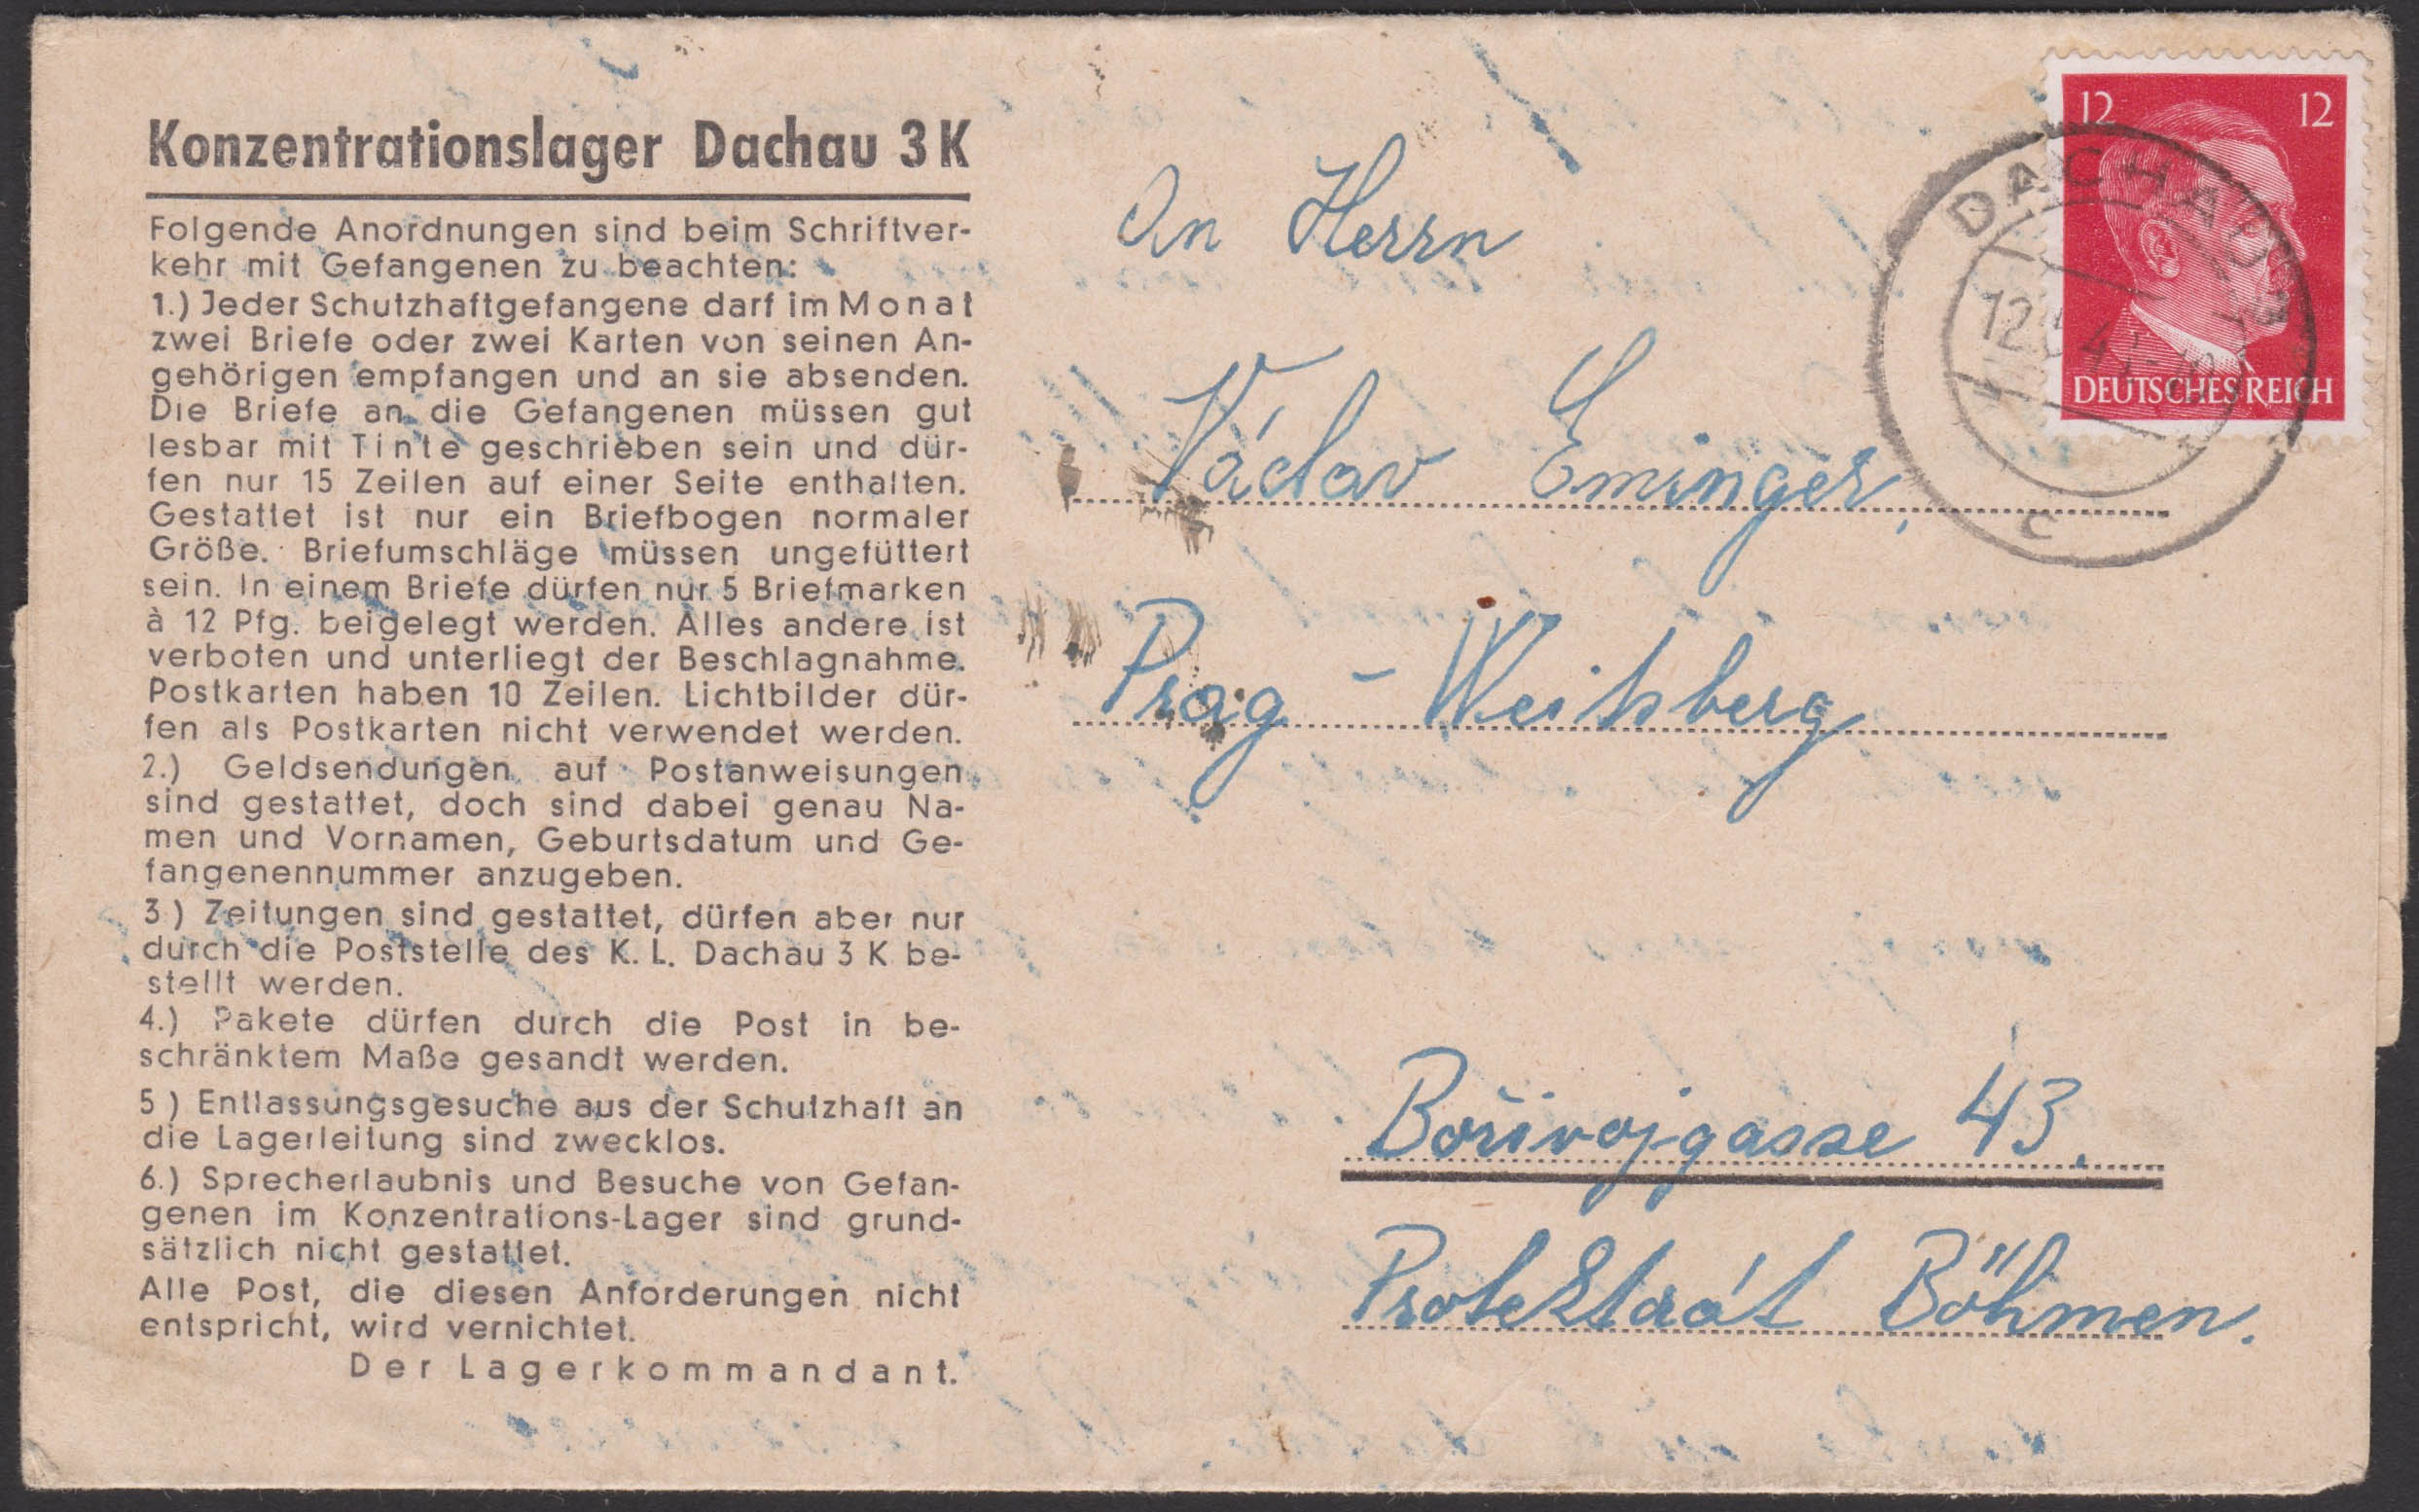 Konzentrationslager Dachau 3 K
Folgende Anordnungen sind beim Schriftver-
kehr mit Gefangenen zu beachten:
1.) Jeder Schutzhaftgefangene darf im Monat
zwei Briefe oder zwei Karten von seinen An-
gehörigen empfangen und an sie absenden.
Die Briefe an die Gefangenen müssen gut
lesbar mit Tinte geschrieben sein und dür-
fen nur 15 Zeilen auf einer Seite enthalten.
Gestattet ist nur ein Briefbogen normaler
Größe. Briefumschläge müssen ungefüttert
sein. In einem Briefe dürfen nur 5 Briefmarken
à 12 Pfg. beigelegt werden. Alles andere ist
verboten und unterliegt der Beschlagnahme.
Postkarten haben 10 Zeilen. Lichtbilder dür-
fen als Postkarten nicht verwendet werden.
2.) Geldsendungen auf Postanweisungen
sind gestattet, doch sind dabei genau Na-
men und Vornamen, Geburtsdatum und Ge-
fangenennummer anzugeben.
3) Zeitungen sind gestattet, dürfen aber nur
durch die Poststelle des K. L. Dachau 3 K be-
stellt werden.
4.) Pakete dürfen durch die Post in be-
schränktem Maße gesandt werden.
5) Entlassungsgesuche aus der Schutzhaft an
die Lagerleitung sind zwecklos.
6.) Sprecherlaubnis und Besuche von Gefan-
genen im Konzentrations-Lager sind grund-
sätzlich nicht gestattet.
Alle Post, die diesen Anforderungen nicht
entspricht, wird vernichtet.
Der Lagerkommandant.
An Herrn
Václav Eminger,
Prag - Weißberg
Bořivojgasse 43.
Protektorát Böhmen.
12 12
DEUTSCHES REICH
DACHAU 3
12
c